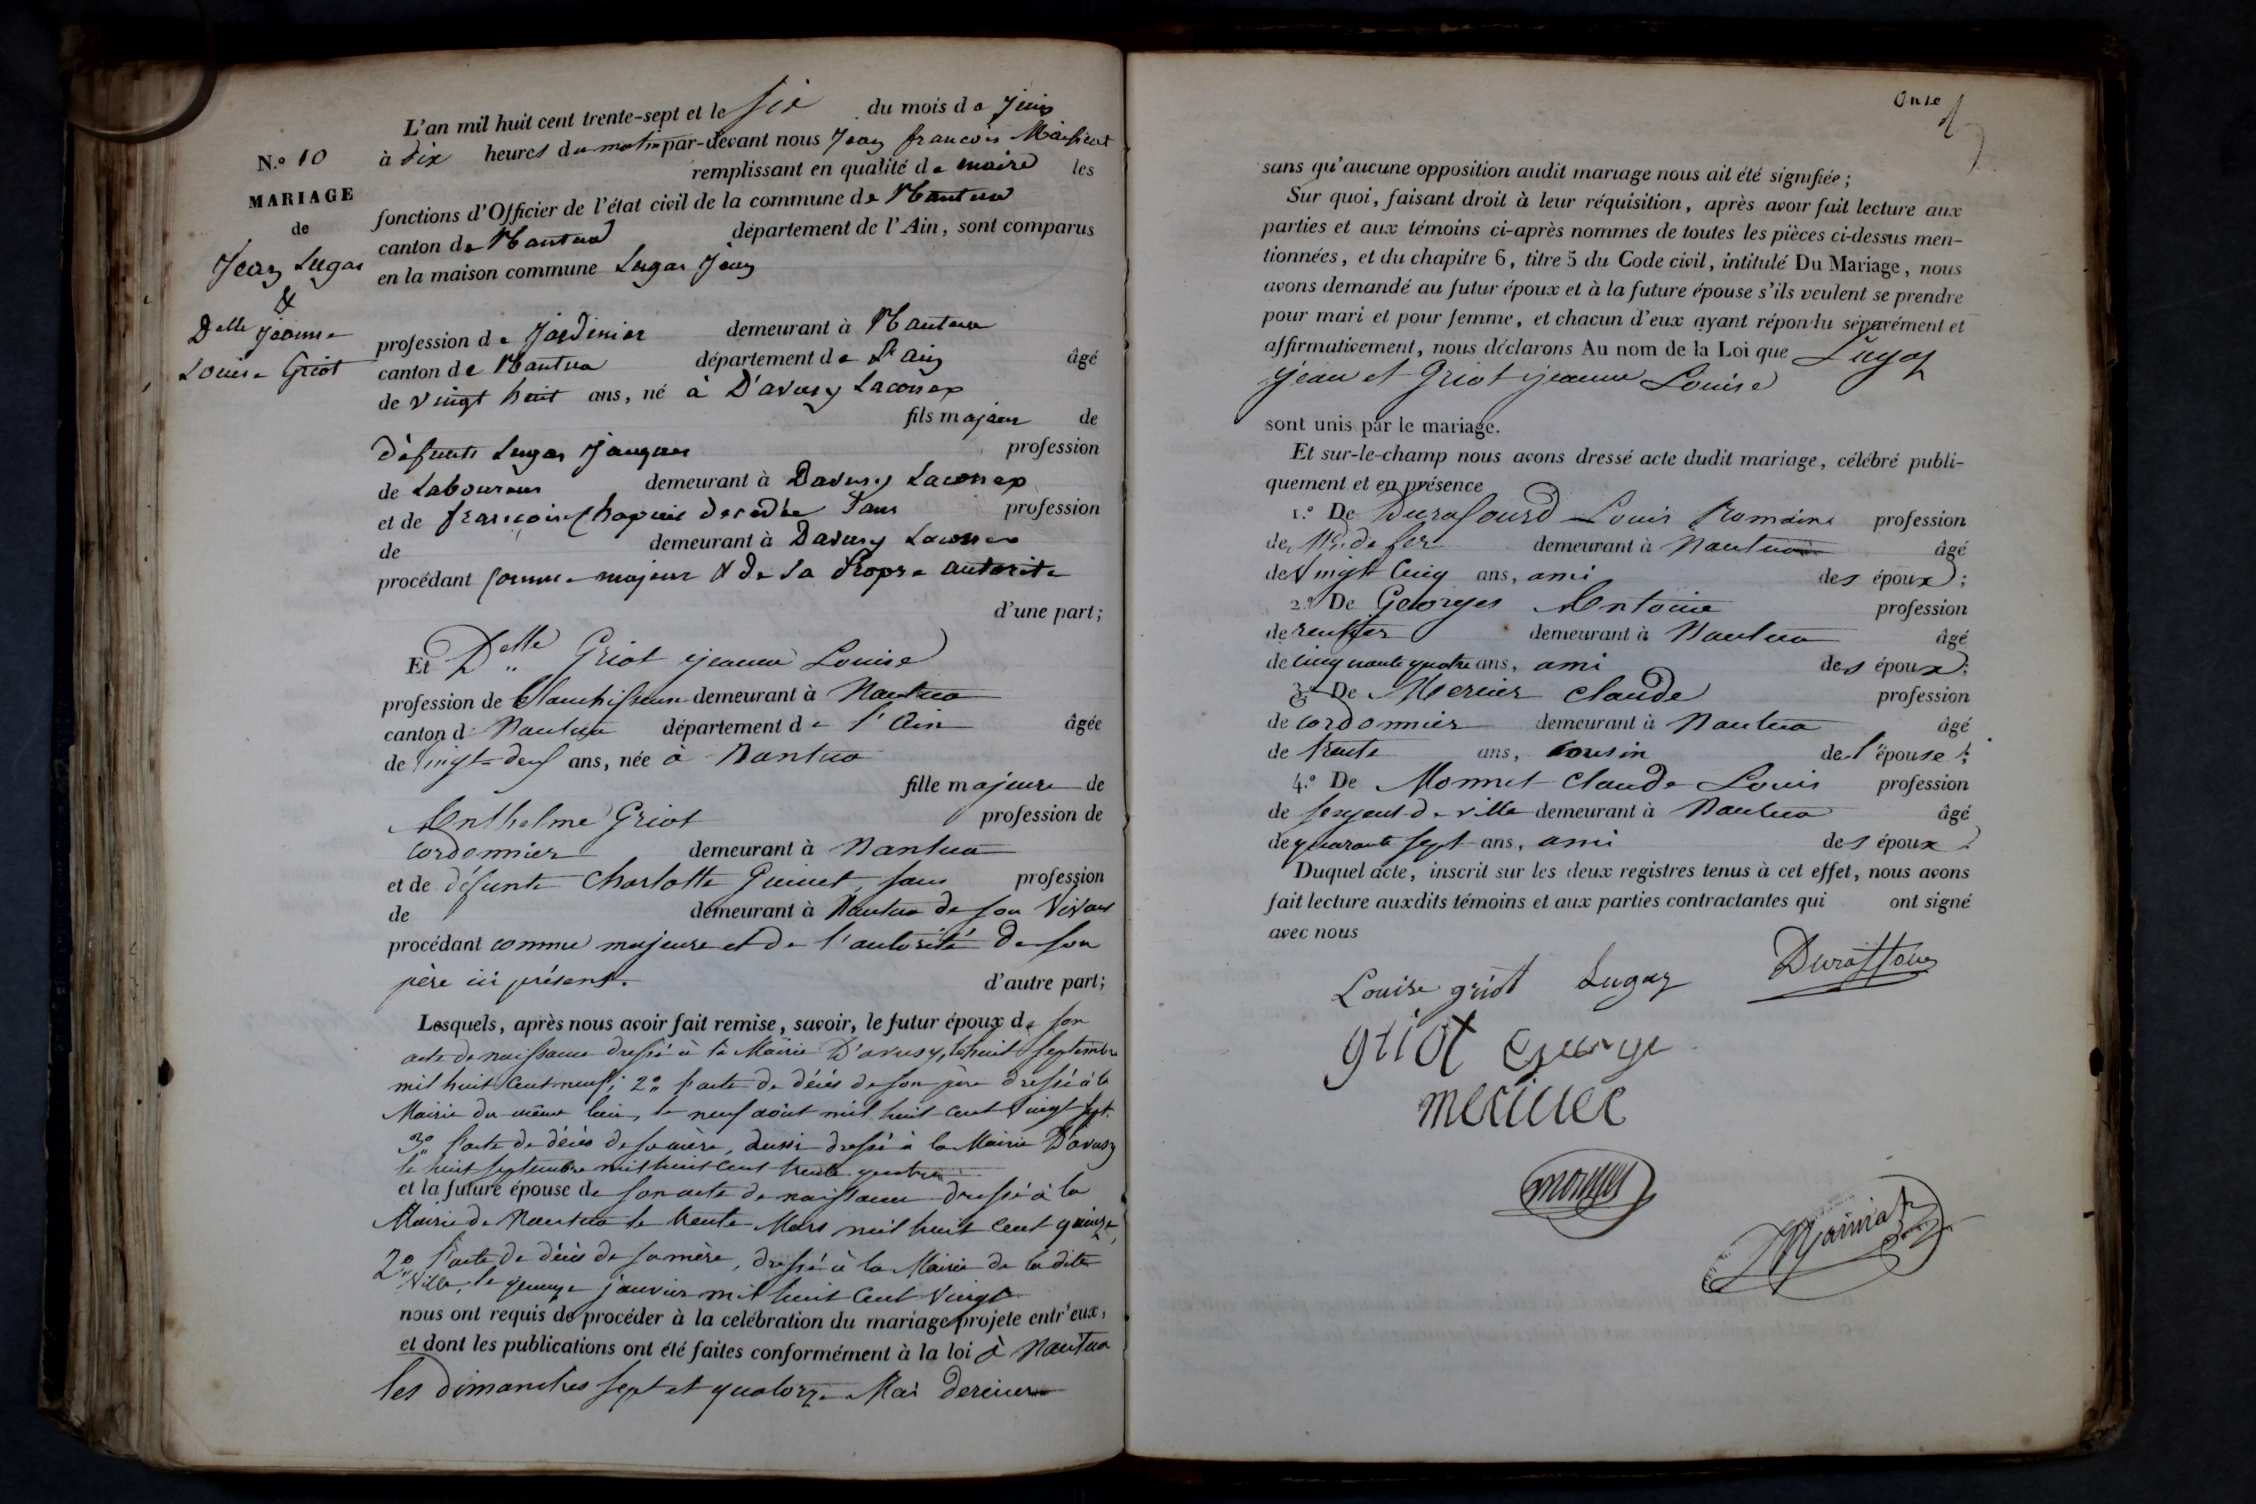 L'an mil huit cent trente-sept et le six du mois de Juin
à dix heures du matin par-devant nous Jean francois
remplissant en qualité de maire les
fonctions d'Officier de l'état civil de la commune de Nantua
canton de Nantua département de l'Ain, sont comparus
en la maison commune Lugaz Jean
N.º 10
MARIAGE
de
Jean Lugaz
&
Delle jeanne
Louise Griot
profession de Jardinier demeurant à Nantua
canton de Nantua département de l'ain âgé
de vingt huit ans, né à D'avusy Laconnex
fils majeur de
défunts Lugaz Jacques profession
de Laboureur demeurant à Davusy Laconnex
et de françoise Chapuis décédée Sans profession
de demeurant à Davusy Laconnex
procédant comme majeur & de sa Propre autorité
d'une part;
Et Delle Griot jeanne Louise
profession de Blanchisseuse demeurant à Nantua
canton d Nantua département de l'Ain âgée
de vingt-deux ans, née à Nantua
fille majeure de
Anthelme Griot profession de
cordonnier demeurant à Nantua
et de défunte Charlotte Guinet, sans profession
de demeurant à Nantua de son vivant
procédant comme majeure et de l'autorité de son
père ici présent. d'autre part;
Lesquels, après nous avoir fait remise, savoir, le futur époux de son
acte de naissance dressé à la Mairie D'avusy, le huit septembre
mil huit cent neuf; 2º l'acte de décès de son père dressé à la
Mairie du même lieu, le neuf août mil huit cent vingt sept.
3º l'acte de décès de sa mère, aussi dressé à la Mairie D'avusy
le huit septembre mil huit cent trente quatre
et la future épouse de son acte de naissance dressé à la
Mairie de Nantua le trente Mars mil huit cent quinze,
2º l'acte de décès de sa mère, dressé à la Mairie de la dite
ville, le quinze janvier mil huit cent vingt
nous ont requis de procéder à la celébration du mariage projeté entr'eux,
et dont les publications ont été faites conformément à la loi à Nantua
les dimanches sept et quatorze Mai dernier
onze
sans qu'aucune opposition audit mariage nous ait été signifiée;
Sur quoi, faisant droit à leur réquisition, après avoir fait lecture aux
parties et aux témoins ci-après nommes de toutes les pièces ci-dessus men-
tionnées, et du chapitre 6, titre 5 du Code civil, intitulé Du Mariage, nous
avons demandé au futur époux et à la future épouse s'ils veulent se prendre
pour mari et pour femme, et chacun d'eux ayant répondu séparément et
affirmativement, nous déclarons Au nom de la Loi que Lugaz
jean et Griot jeanne Louise
sont unis par le mariage.
Et sur-le-champ nous avons dressé acte dudit mariage, célébré publi-
quement et en présence
1.º De Durafourd Louis Romain profession
de Md. de fer demeurant à Nantua âgé
de vingt Cinq ans, ami des époux;
2.º De Georges Antoine profession
de rentier demeurant à Nantua âgé
de cinquante quatre ans, ami des époux;
3.º De Mercier Claude profession
de cordonnier demeurant à Nantua âgé
de trente ans, cousin de l'épouse;
4.º De Monnet Claude Louis profession
de sergent de ville demeurant à Nantua âgé
de quarante sept ans, ami des époux.
Duquel acte, inscrit sur les deux registres tenus à cet effet, nous avons
fait lecture auxdits témoins et aux parties contractantes qui ont signé
avec nous
Louise griot Lugaz
griot George
mercier